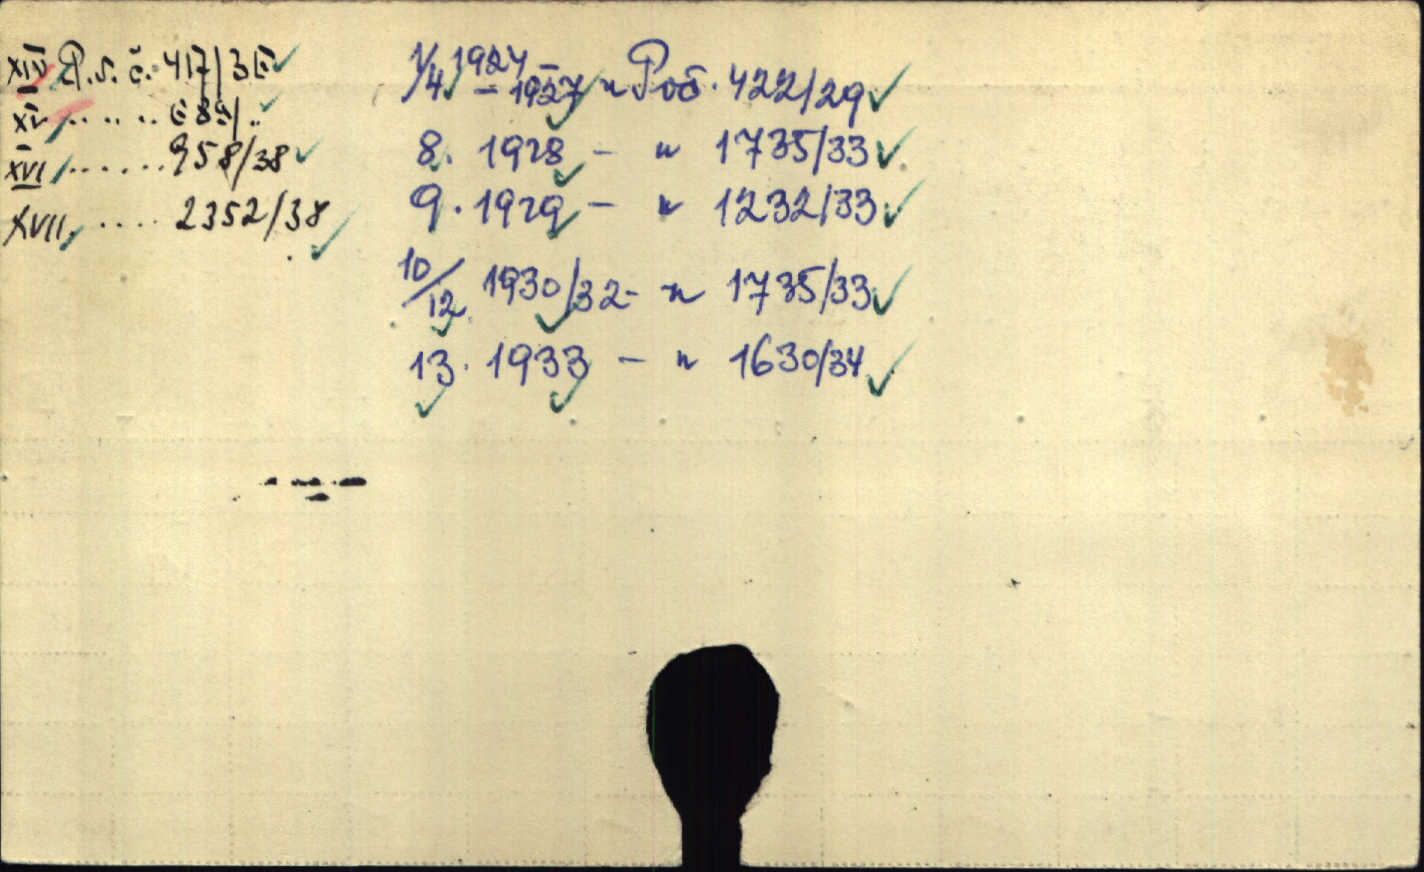 XIV P.s.č. 417/36
XV . . . . . 689/ ..
XVI . . . . . . 958/38
XVII . . . . 2352/38
1/4. 1924 – 1927 " Poš. 422/29
8. 1928 – " 1735/33
9. 1929 – " 1232/33
10/12. 1930/32 - " 1735/33
13. 1933 – " 1630/34